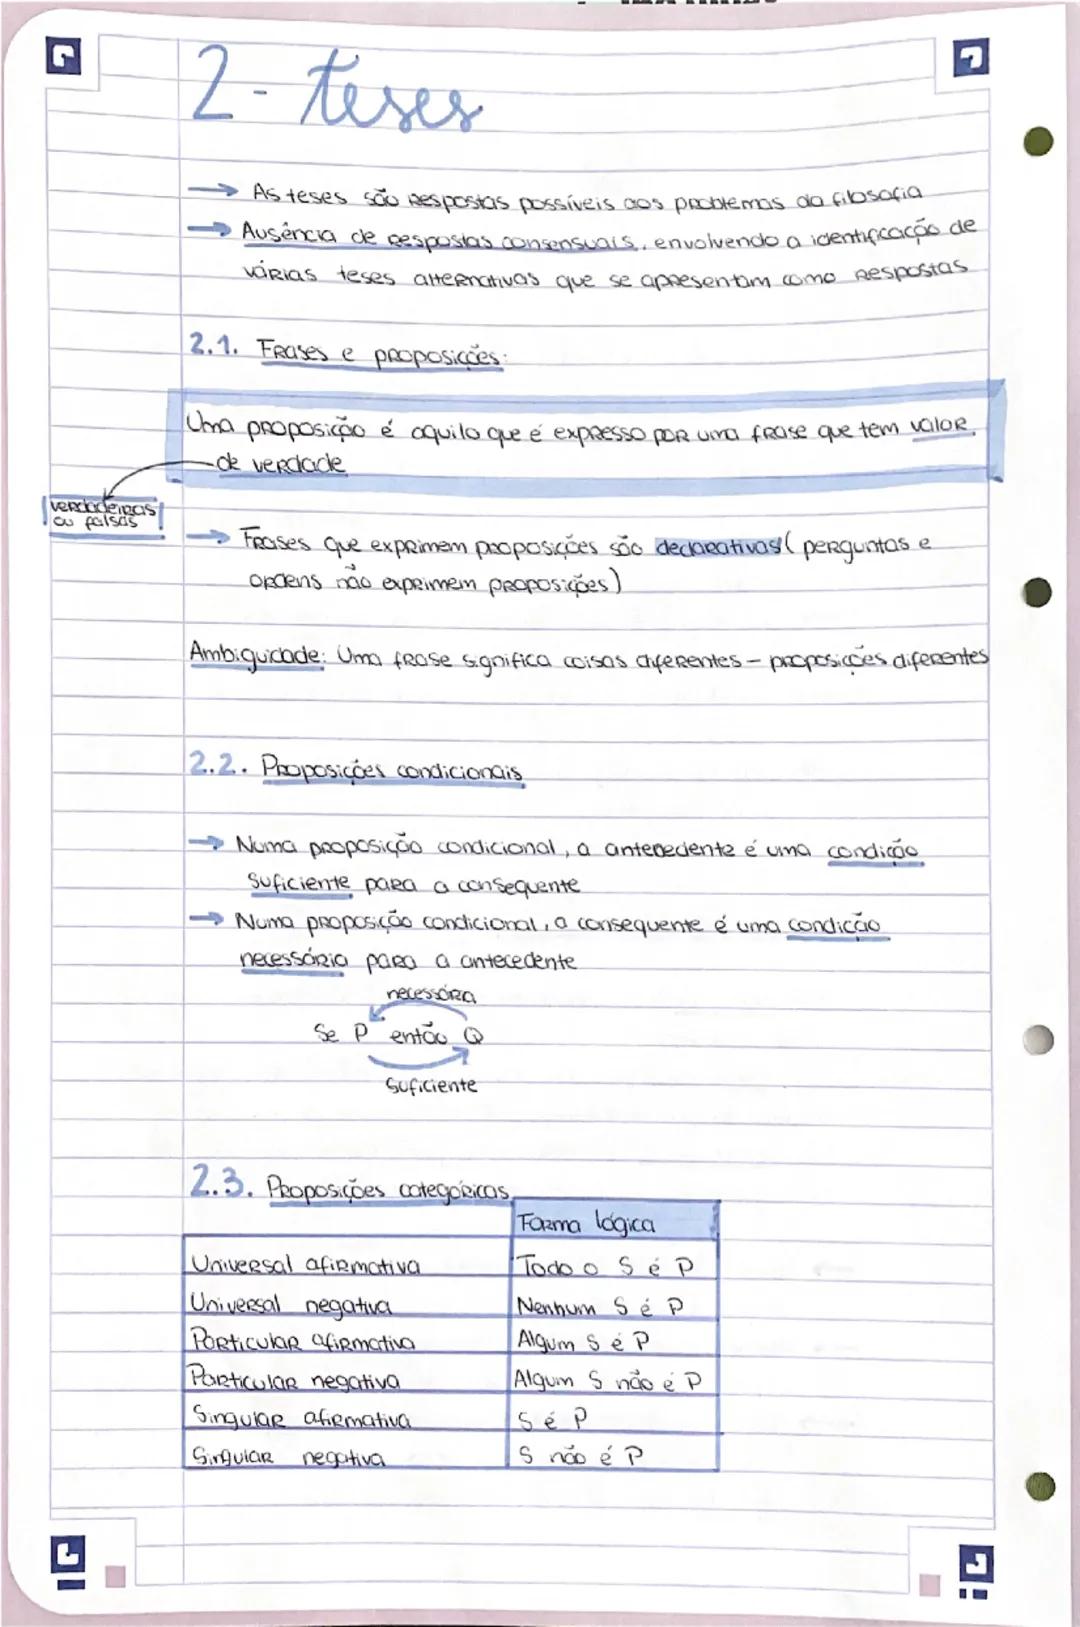 2- teses
→ As teses são respostas possíveis aos problemas da filosofia
→ Ausência de respostas consensuais, envolvendo a identificação de
várias teses alternativas que se apresentam como respostas
2.1. Frases e proposições:
Uma proposição é aquilo que é expresso por uma frase que tem valor
de verdade
verdadeiras
ou falsas
→ Frases que exprimem proposições são declarativas (perguntas e
ordens não exprimem proposições)
Ambiguidade: Uma frase significa coisas diferentes - proposições diferentes
2.2. Proposições condicionais
→ Numa proposição condicional, a antecedente é uma condição
suficiente para a consequente
→ Numa proposição condicional, a consequente é uma condição
necessária para a antecedente
necessária
Se P então Q
Suficiente
2.3. Proposições categóricas
Forma lógica
Universal afirmativa Todo o S é P
Universal negativa Nenhum S é P
Particular afirmativa Algum S é P
Particular negativa Algum S não é P
Singular afirmativa S é P
Singular negativa S não é P